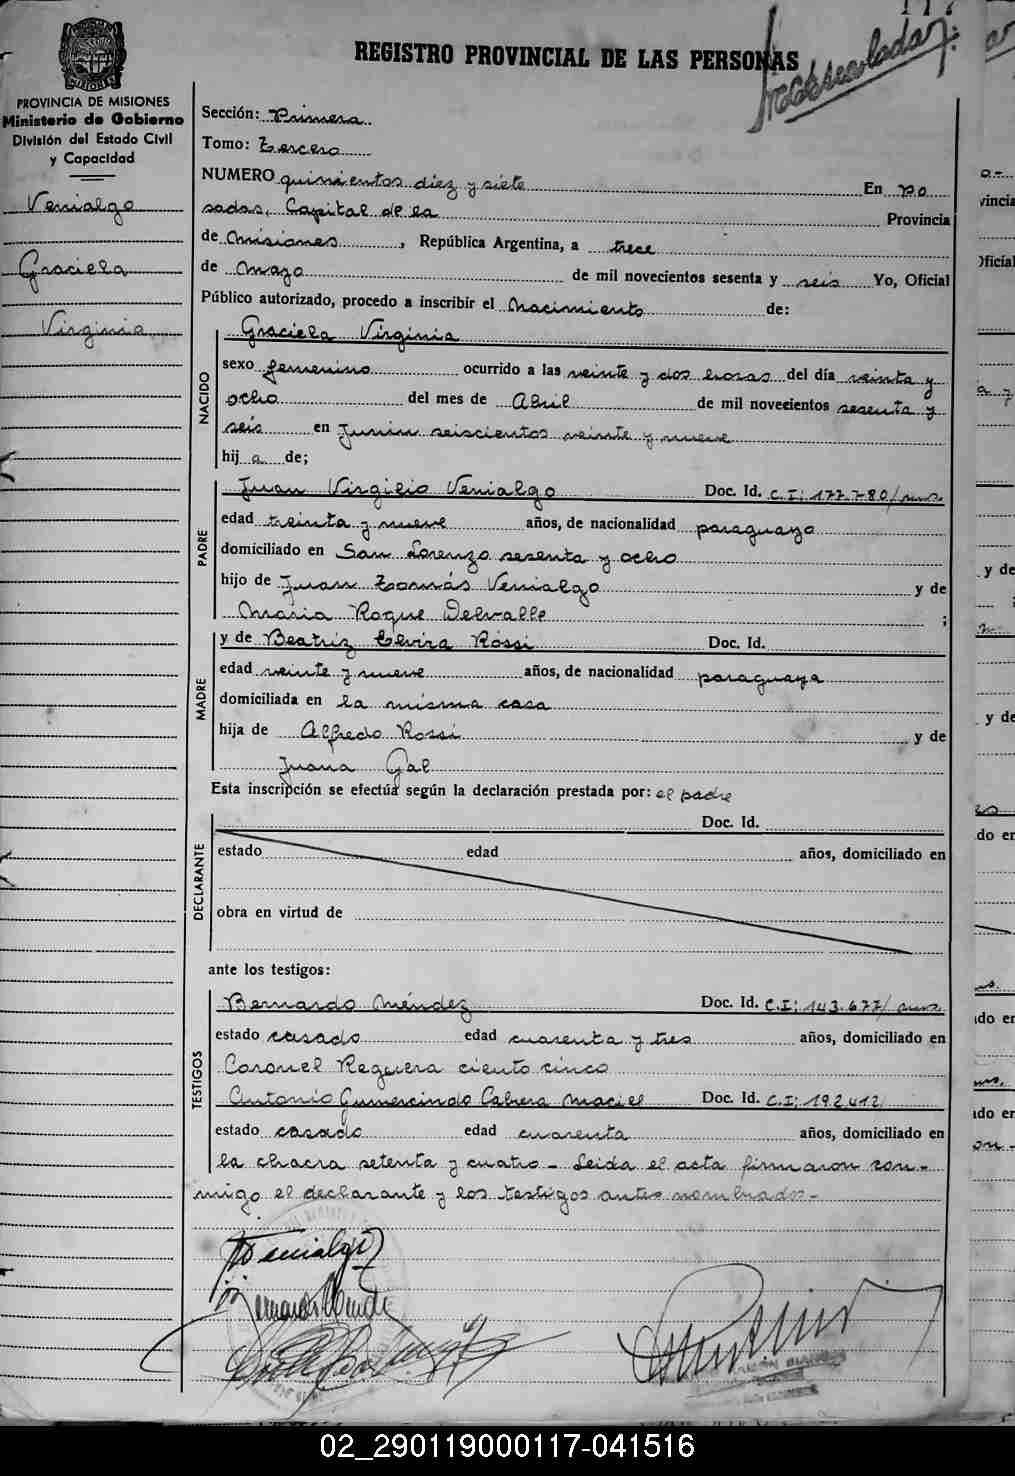 REGISTRO PROVINCIAL DE LAS PERSONAS
PROVINCIA DE MISIONES
Ministerio de Gobierno
División del Estado Civil
y Capacidad
Venialgo
Graciela
Virginia
Sección: Primera
Tomo: Tercero
NUMERO quinientos diez y siete En Po
sadas, Capital de la Provincia
de Misiones, República Argentina, a trece
de Mayo de mil novecientos sesenta y seis Yo, Oficial
Público autorizado, procedo a inscribir el Nacimiento de:
NACIDO
Graciela Virginia
sexo femenino ocurrido a las veinte y dos horas del día veinta y
ocho del mes de Abril de mil novecientos sesenta y
seis en Junín seiscientos veinte y nueve
hij a de;
PADRE
Juan Virgilio Venialgo Doc. Id. C.I: 177.780/mns.
edad treinta y nueve años, de nacionalidad paraguayo
domiciliado en San Lorenzo sesenta y ocho
hijo de Juan Tomás Venialgo y de
Maria Roque Delvalle ;
MADRE
y de Beatriz Elvira Rossi Doc. Id.
edad veinte y nueve años, de nacionalidad paraguaya
domiciliada en la misma casa
hija de Alfredo Rossi y de
Juana Gal
Esta inscripción se efectúa según la declaración prestada por: el padre
DECLARANTE
Doc. Id.
estado edad años, domiciliado en
obra en virtud de
ante los testigos:
TESTIGOS
Bernardo Méndez Doc. Id. C.I: 143.677/mns.
estado casado edad cuarenta y tres años, domiciliado en
Coronel Reguera ciento cinco
Antonio Gumercindo Cabrera Maciel Doc. Id. C.I: 192.412
estado casado edad cuarenta años, domiciliado en
la chacra setenta y cuatro - Leida el acta firmaron con-
migo el declarante y los testigos antes nombrados-
Venialgo
02_290119000117-041516